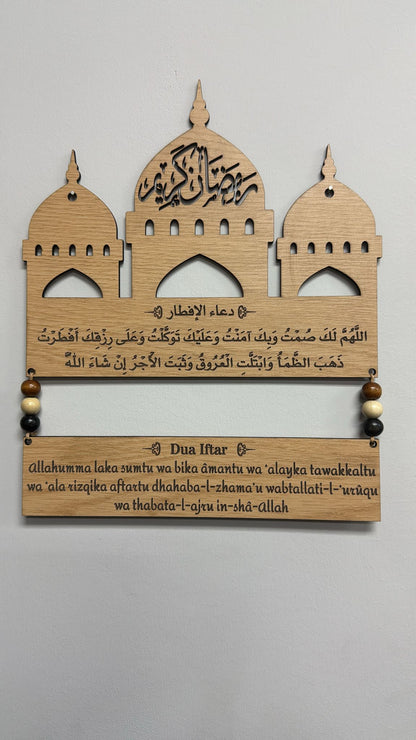 رمضان كريم
دعاء الإفطار
اللَّهُمَّ لَكَ صُمْتُ وَبِكَ آمَنْتُ وَعَلَيْكَ تَوَكَّلْتُ وَعَلَى رِزْقِكَ أَفْطَرْتُ
ذَهَبَ الظَّمَأُ وَابْتَلَّتِ الْعُرُوقُ وَثَبَتَ الأَجْرُ إِنْ شَاءَ اللَّهُ
Dua Iftar
Allahumma laka sumtu wa bika âmantu wa 'alayka tawakkaltu
wa 'ala rizqika aftartu dhahaba-l-zhama'u wabtallati-l-'urûqu
wa thabata-l-ajru in-shâ-Allah